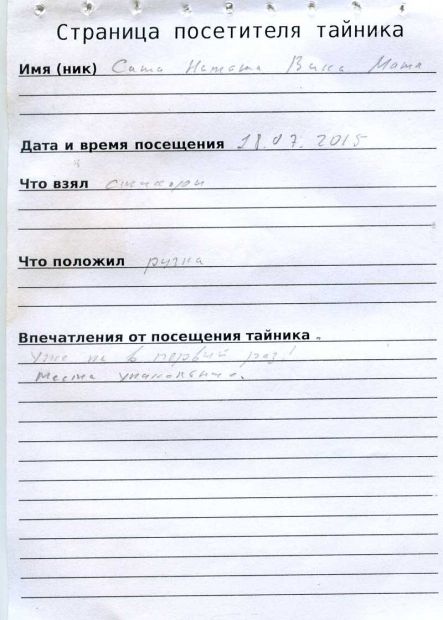 Страница посетителя тайника
Имя (ник) Саша Наташа Вика Маша
Дата и время посещения 18.07.2015
Что взял
Что положил ручка
Впечатления от посещения тайника
Уже не в первый раз!
Места уникальные.